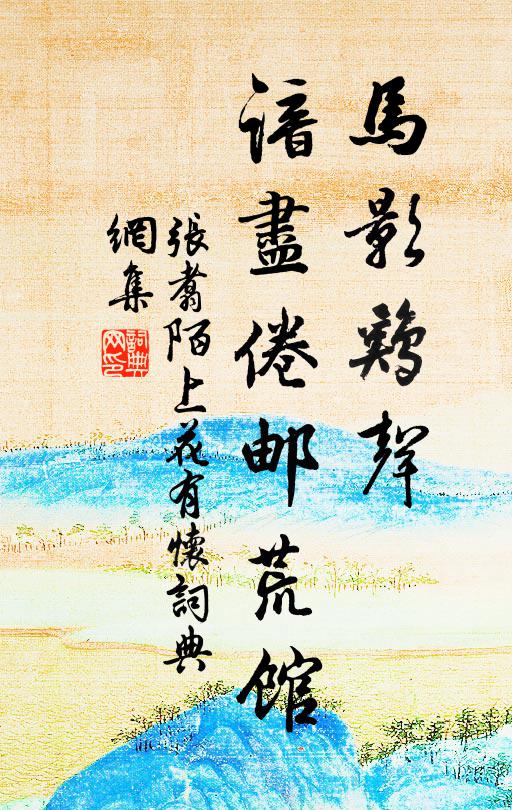 馬影鷄聲
諳盡倦邮荒館
張翥陌上花有懷詞典
網集
詞典
网印